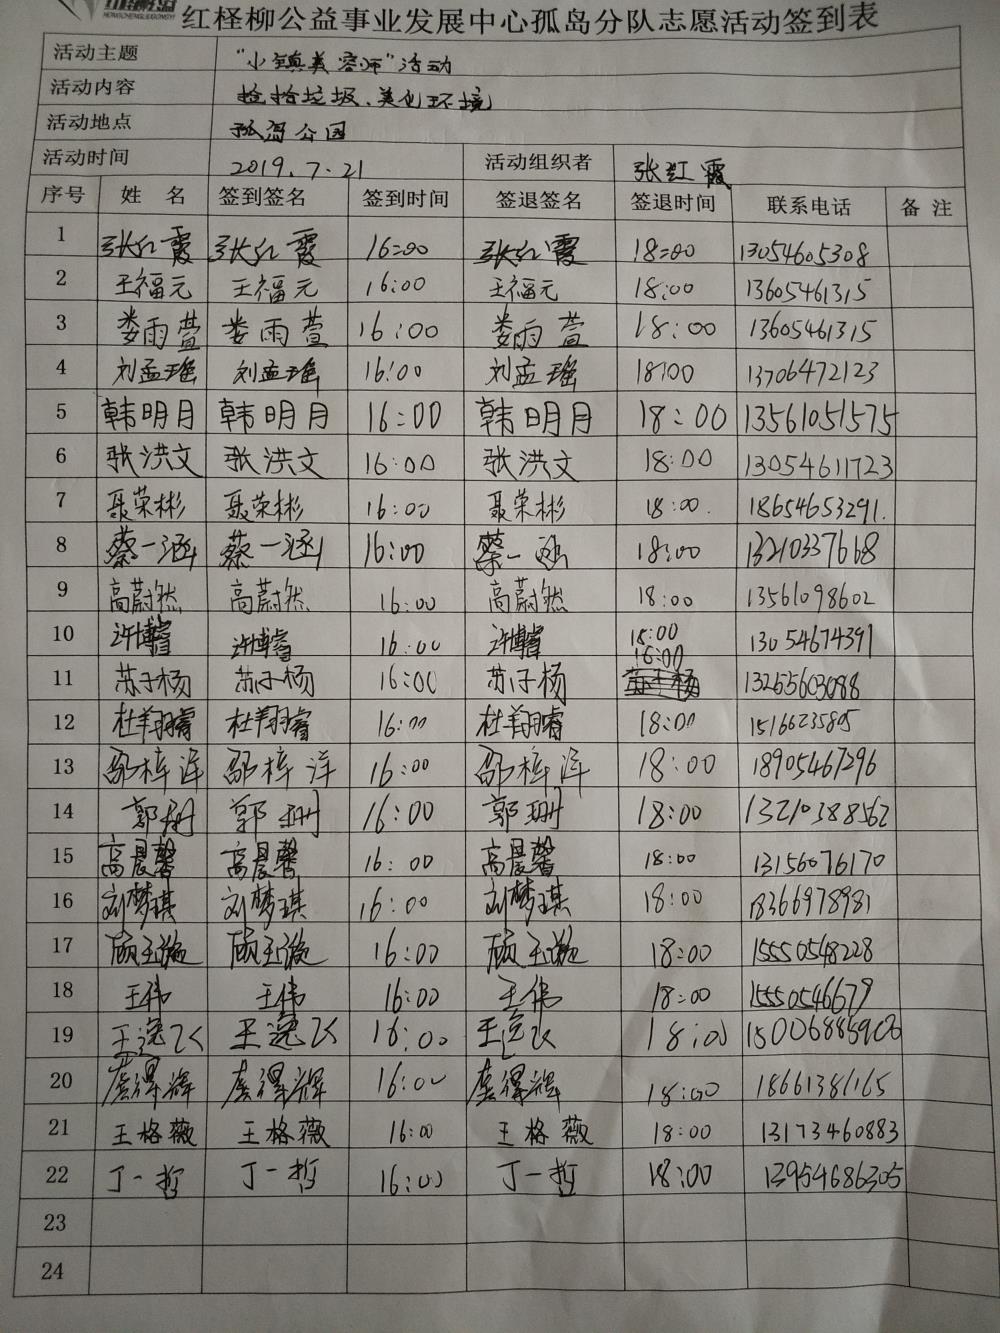 红柽柳公益事业发展中心孤岛分队志愿活动签到表
活动主题 "小镇美容师"活动
活动内容 捡拾垃圾、美化环境
活动地点 孤岛公园
活动时间 2019.7.21 活动组织者 张红霞
序号 姓 名 签到签名 签到时间 签退签名 签退时间 联系电话 备 注
1 张红霞 张红霞 16:00 张红霞 18:00 13054605308
2 王福元 王福元 16:00 王福元 18:00 13605461315
3 娄雨萱 娄雨萱 16:00 娄雨萱 18:00 13605461315
4 刘孟瑶 刘孟瑶 16:00 刘孟瑶 18:00 13706472123
5 韩明月 韩明月 16:00 韩明月 18:00 13561051575
6 张洪文 张洪文 16:00 张洪文 18:00 13054611723
7 聂荣彬 聂荣彬 16:00 聂荣彬 18:00. 18654653291.
8 蔡一涵 蔡一涵 16:00 蔡一涵 18:00 13210337668
9 高蔚然 高蔚然 16:00 高蔚然 18:00 13561098602
10 许博睿 许博睿 16:00 许博睿 18:00 13054674391
11 苏子杨 苏子杨 16:00 苏子杨 16:00 13255603088
12 杜翔睿 杜翔睿 16:00 杜翔睿 18:00 15166235805
13 邵梓洋 邵梓洋 16:00 邵梓洋 18:00 18905467296
14 郭珊 郭珊 16:00 郭珊 18:00 13210388562
15 高晨馨 高晨馨 16:00 高晨馨 18:00 13156076170
16 刘梦琪 刘梦琪 16:00 刘梦琪 18:00 18366978981
17 16:00 18:00 15550548228
18 王伟 王伟 16:00 王伟 18:00 15550546679
19 王逸飞 王逸飞 16:00 王逸飞 18:00 15006885906
20 16:00 18:00 18661386165
21 王格薇 王格薇 16:00 王格薇 18:00 13173460883
22 丁一哲 丁一哲 16:00 丁一哲 18:00 13954686305
23
24